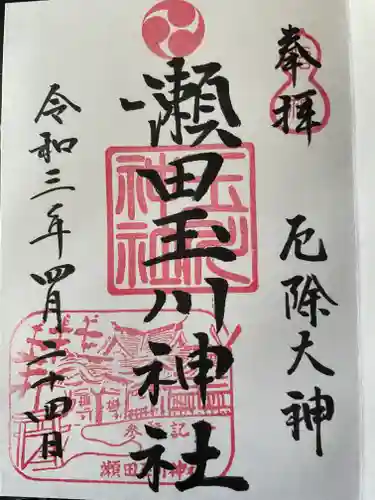 奉拝
厄除大神
瀬田玉川神社
令和三年四月二十四日
玉川神社
参拝記
瀬田玉川神社